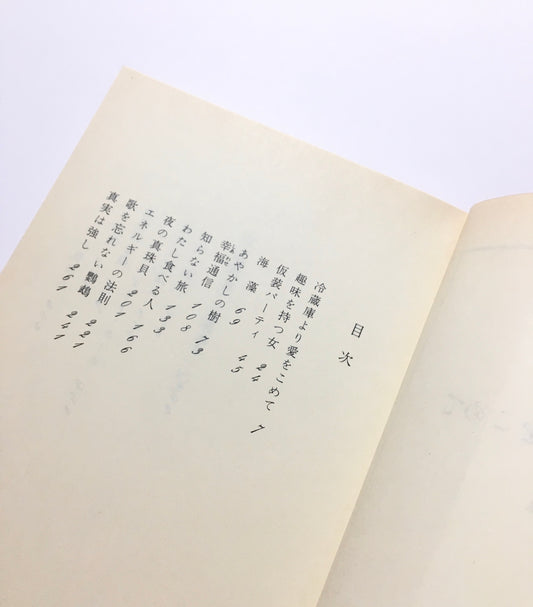 目次
冷蔵庫より愛をこめて 7
趣味を持つ女 24
仮装パーティ 45
海藻 69
あやかしの樹 73
幸福通信 108
知らない旅 133
わたし食べる人 166
夜の真珠貝 201
エネルギーの法則 221
歌を忘れない鸚鵡 241
真実は強し 261